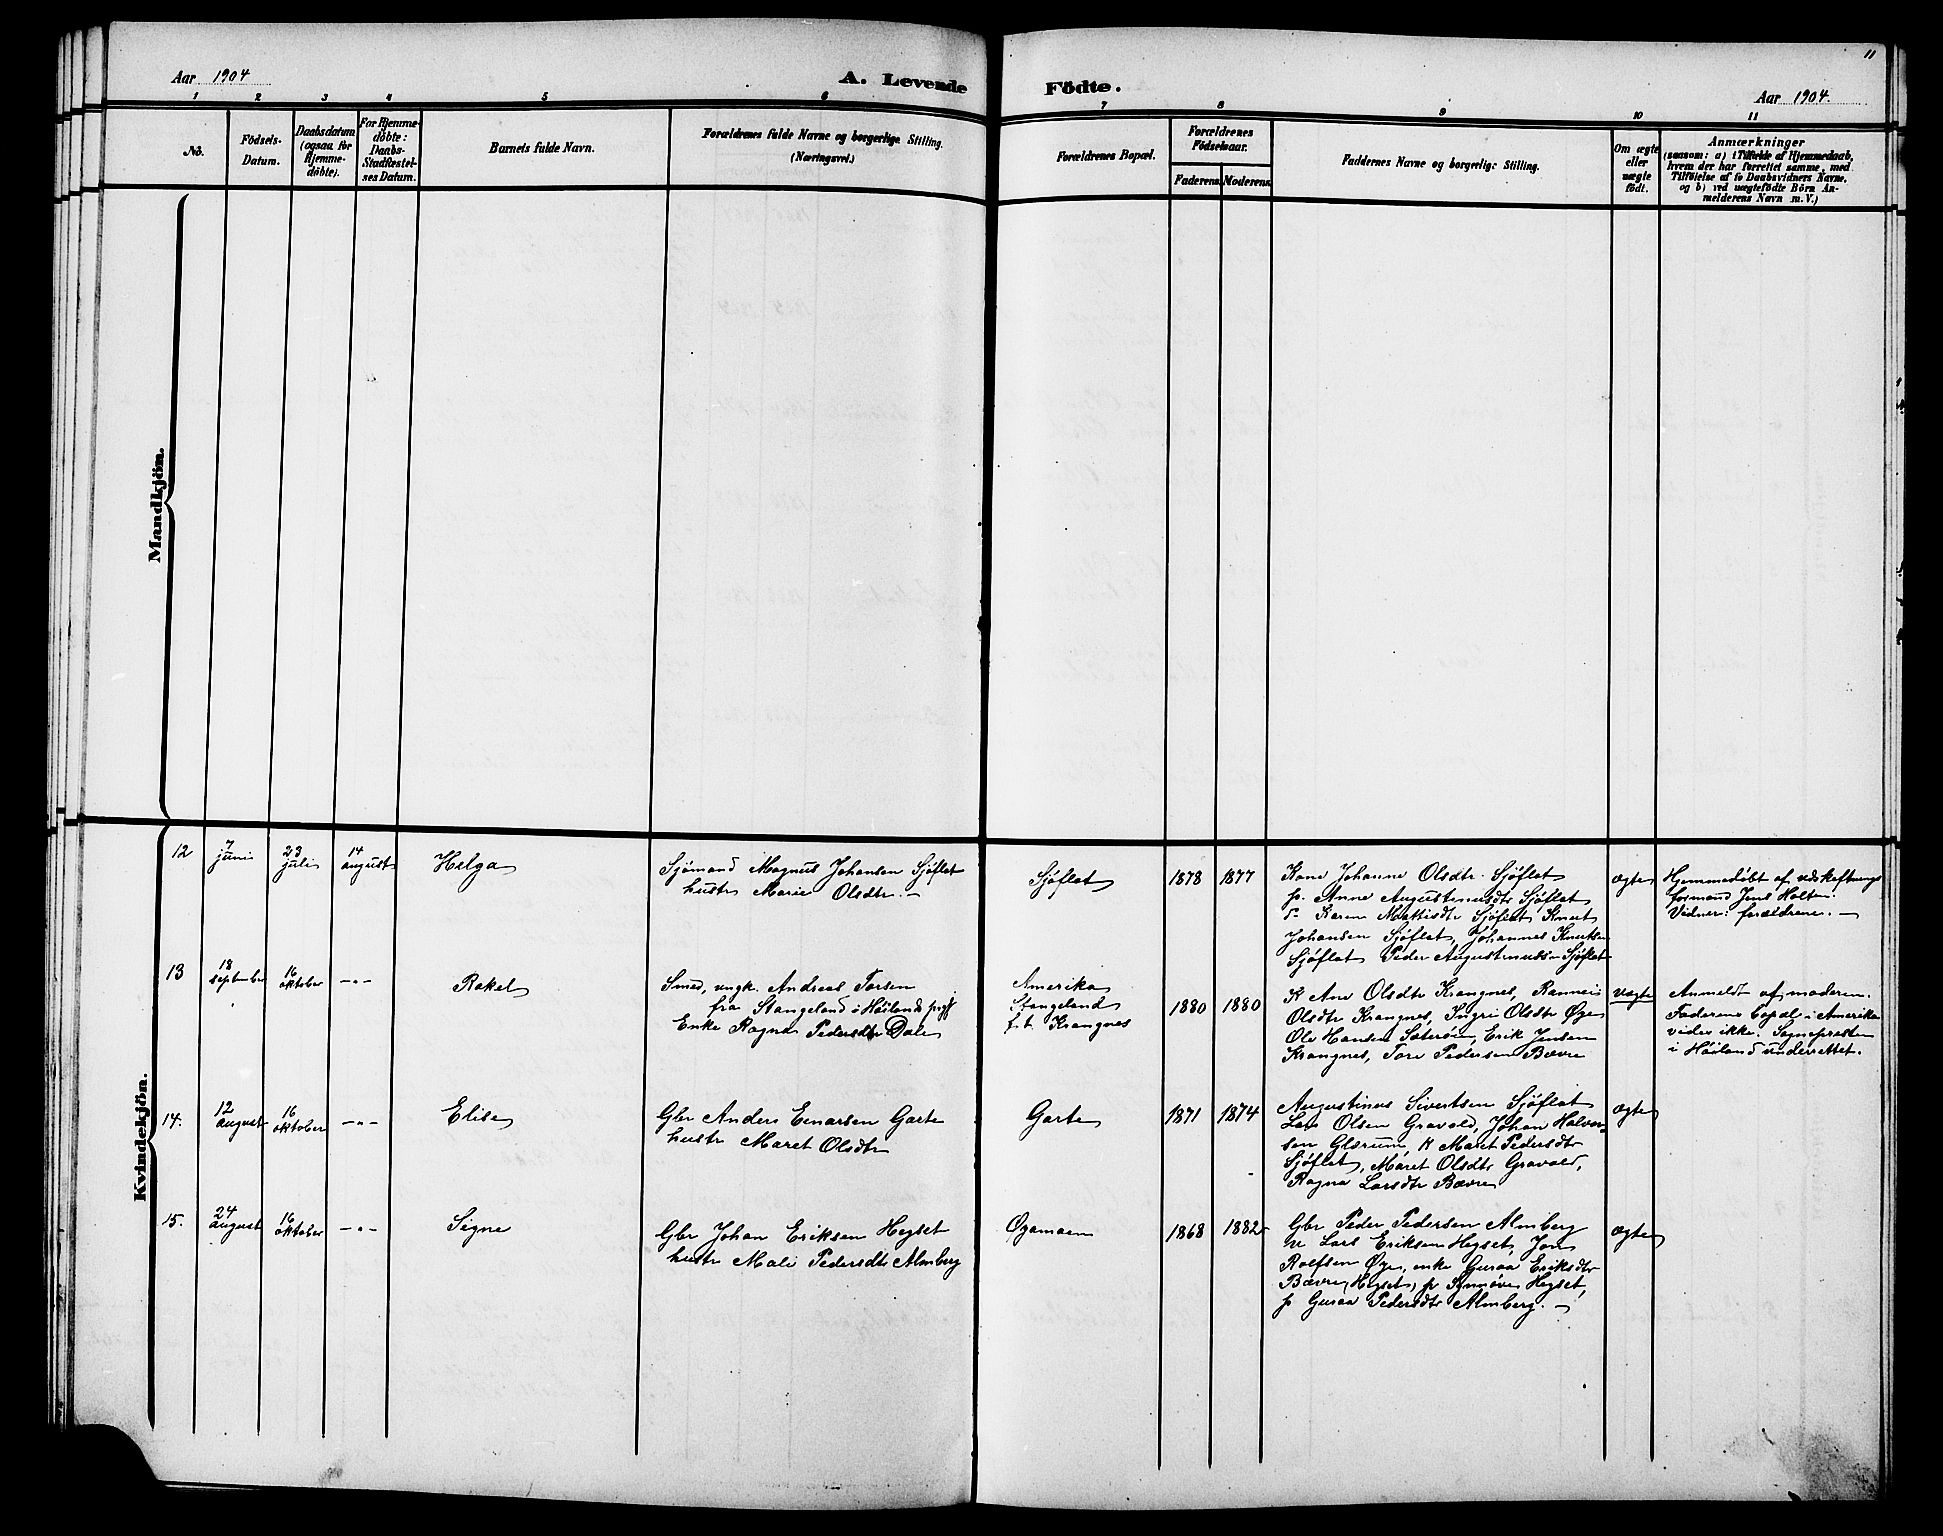 Aar 1904
A. Levende Födte.
Aar 1904.
11
1 2 3 4 5 6 7 8 9 10 11
No.
Födsels-
Datum.
Daabsdatum
(ogsaa for
Hjemme-
döbte).
For Hjemme-
döbte:
Daabs-
Stadfæstel-
ses Datum.
Barnets fulde Navn.
Forældrenes fulde Navne og borgerlige Stilling.
(Næringsvei.)
Forældrenes Bopæl.
Forældrenes
Födselsaar.
Faderens. Moderens.
Faddernes Navne og borgerlige Stilling.
Om ægte
eller
uægte
födt.
Anmærkninger
(saasom: a) i Tilfælde af Hjemmedaab,
hvem der har forrettet samme, med
Tilföielse af to Daabsvidners Navne,
og b) ved uægtefödte Börn An-
melderens Navn m. V.)
Mandkjön.
Kvindekjön.
12
7
juni
23
juli
14
august
Helga
Sjömand Magnus Johansen Sjöflat
hustr Marie Olsdtr. —
Sjöflat
1878 1877
Kone Johanne Olsdtr. Sjöflat
p. Anne Augustinusdtr Sjöflat
Karen Mattisdtr Sjöflat, Knut
Johansen Sjöflat, Johannes Knutsen
Sjöflat Peder Augustinussn Sjöflat
ægte
Hjemmedöbt af vedskeftnings
formand Jens Holten.
Vidner: forældrene. —
13
18
september
16
oktober
—"—
Rakel
Smed, ungk. Andreas Torsen
fra Stangeland i Höilands prgj
Enke Ragna Pedersdtr Dale
Amerika
Stangeland
f.t. Krangnes
1880 1880
K Ane Olsdtr Krangnes, Rannei
Olsdtr Krangnes, Ingri Olsdtr Øye
Ole Hansen Sæterøen, Erik Jensen
Krangnes, Tore Pedersen Bævre
uægte
Anmeldt af moderen.
Faderens bopæl i Amerika
vides ikke. Sognepresten
i Höiland underrettet.
14.
12
august
16
oktober
—"—
Elise
Gbr Anders Einarsen Garte
hustr Maret Olsdtr
Garte
1871 1874
Augustinus Sivertsen Sjöflat
Lars Olsen Gravald, Johan Halvor-
sen Glærum, K Maret Pedersdtr
Sjöflat, Maret Olsdtr Gravald,
Ragna Larsdtr Bævre
ægte
15.
24
august
16
oktober
—"—
Signe
Gbr Johan Eriksen Hegset
hustr Mali Pedersdtr Almberg
Øyamoen
1868 1882
Gbr Peder Pedersen Almberg
Lars Eriksen Hegset, Jon
Rolfsen Øye, enke Guraa Eriksdtr
Bævre (Hegset) p Synnöve Hegset,
p Guraa Pedersdtr Almberg. —
ægte